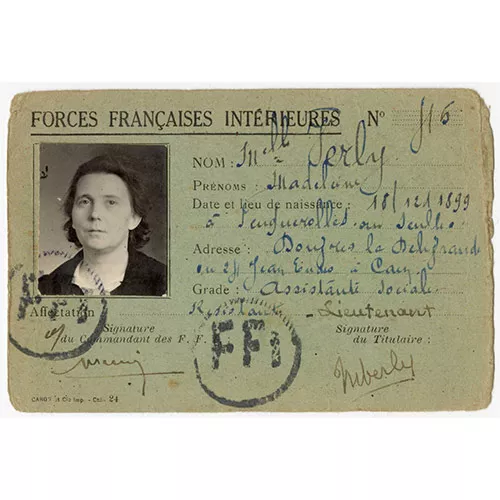 FORCES FRANÇAISES INTÉRIEURES N° 516
NOM : Melle Ferly
PRÉNOMS : Madeleine
Date et lieu de naissance : 18/12/1899
à Feuguerolles sur Seulles
Adresse : Douvres la Délivrande
ou 28 Jean Eudes à Caen
Grade : Assistante Sociale
Affectation Résistance - Lieutenant
Signature Signature
du Commandant des F. F. du Titulaire :
FFI
CARON et Cie Imp. - Caen 24